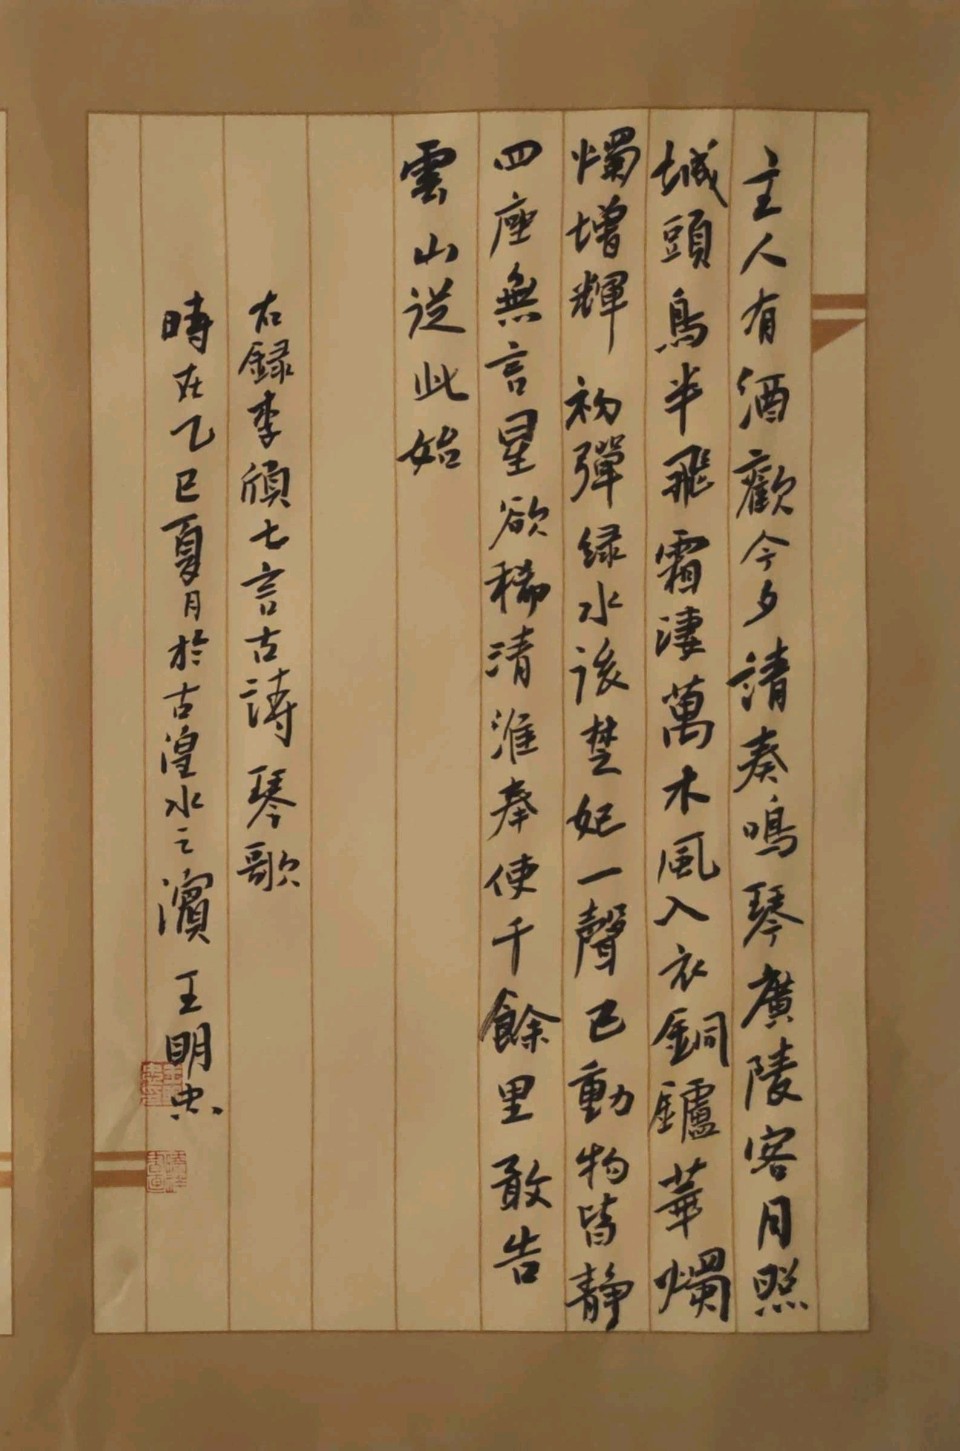 主人有酒歡今夕請奏鳴琴廣陵客月照
城頭烏半飛霜淒萬木風入衣銅鑪華燭
燭增輝初彈緑水後楚妃一聲已動物皆静
四座無言星欲稀清淮奉使千餘里敢告
雲山從此始
右録李頎七言古詩琴歌
時在乙巳夏月於古湟水之濱王明忠